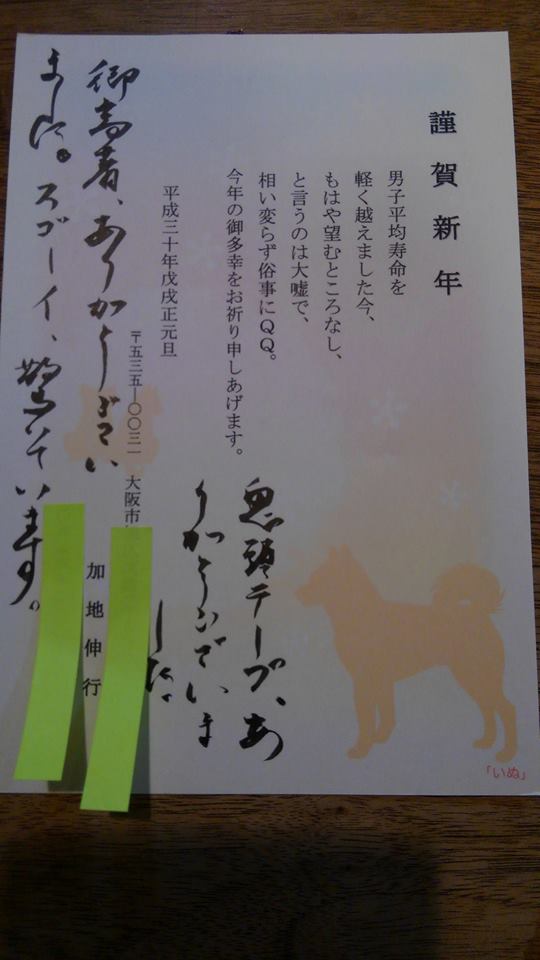 謹賀新年
男子平均寿命を
軽く越えました今、
もはや望むところなし、
と言うのは大嘘で、
相い変らず俗事にＱＱ。
今年の御多幸をお祈り申しあげます。
平成三十年戊戌正元旦
〒五三五―〇〇三一 大阪市
加地伸行
テープ、あ
りがとうございま
した。
御高著、ありがとうござい
ました。スゴーイ、驚いています。
「いぬ」